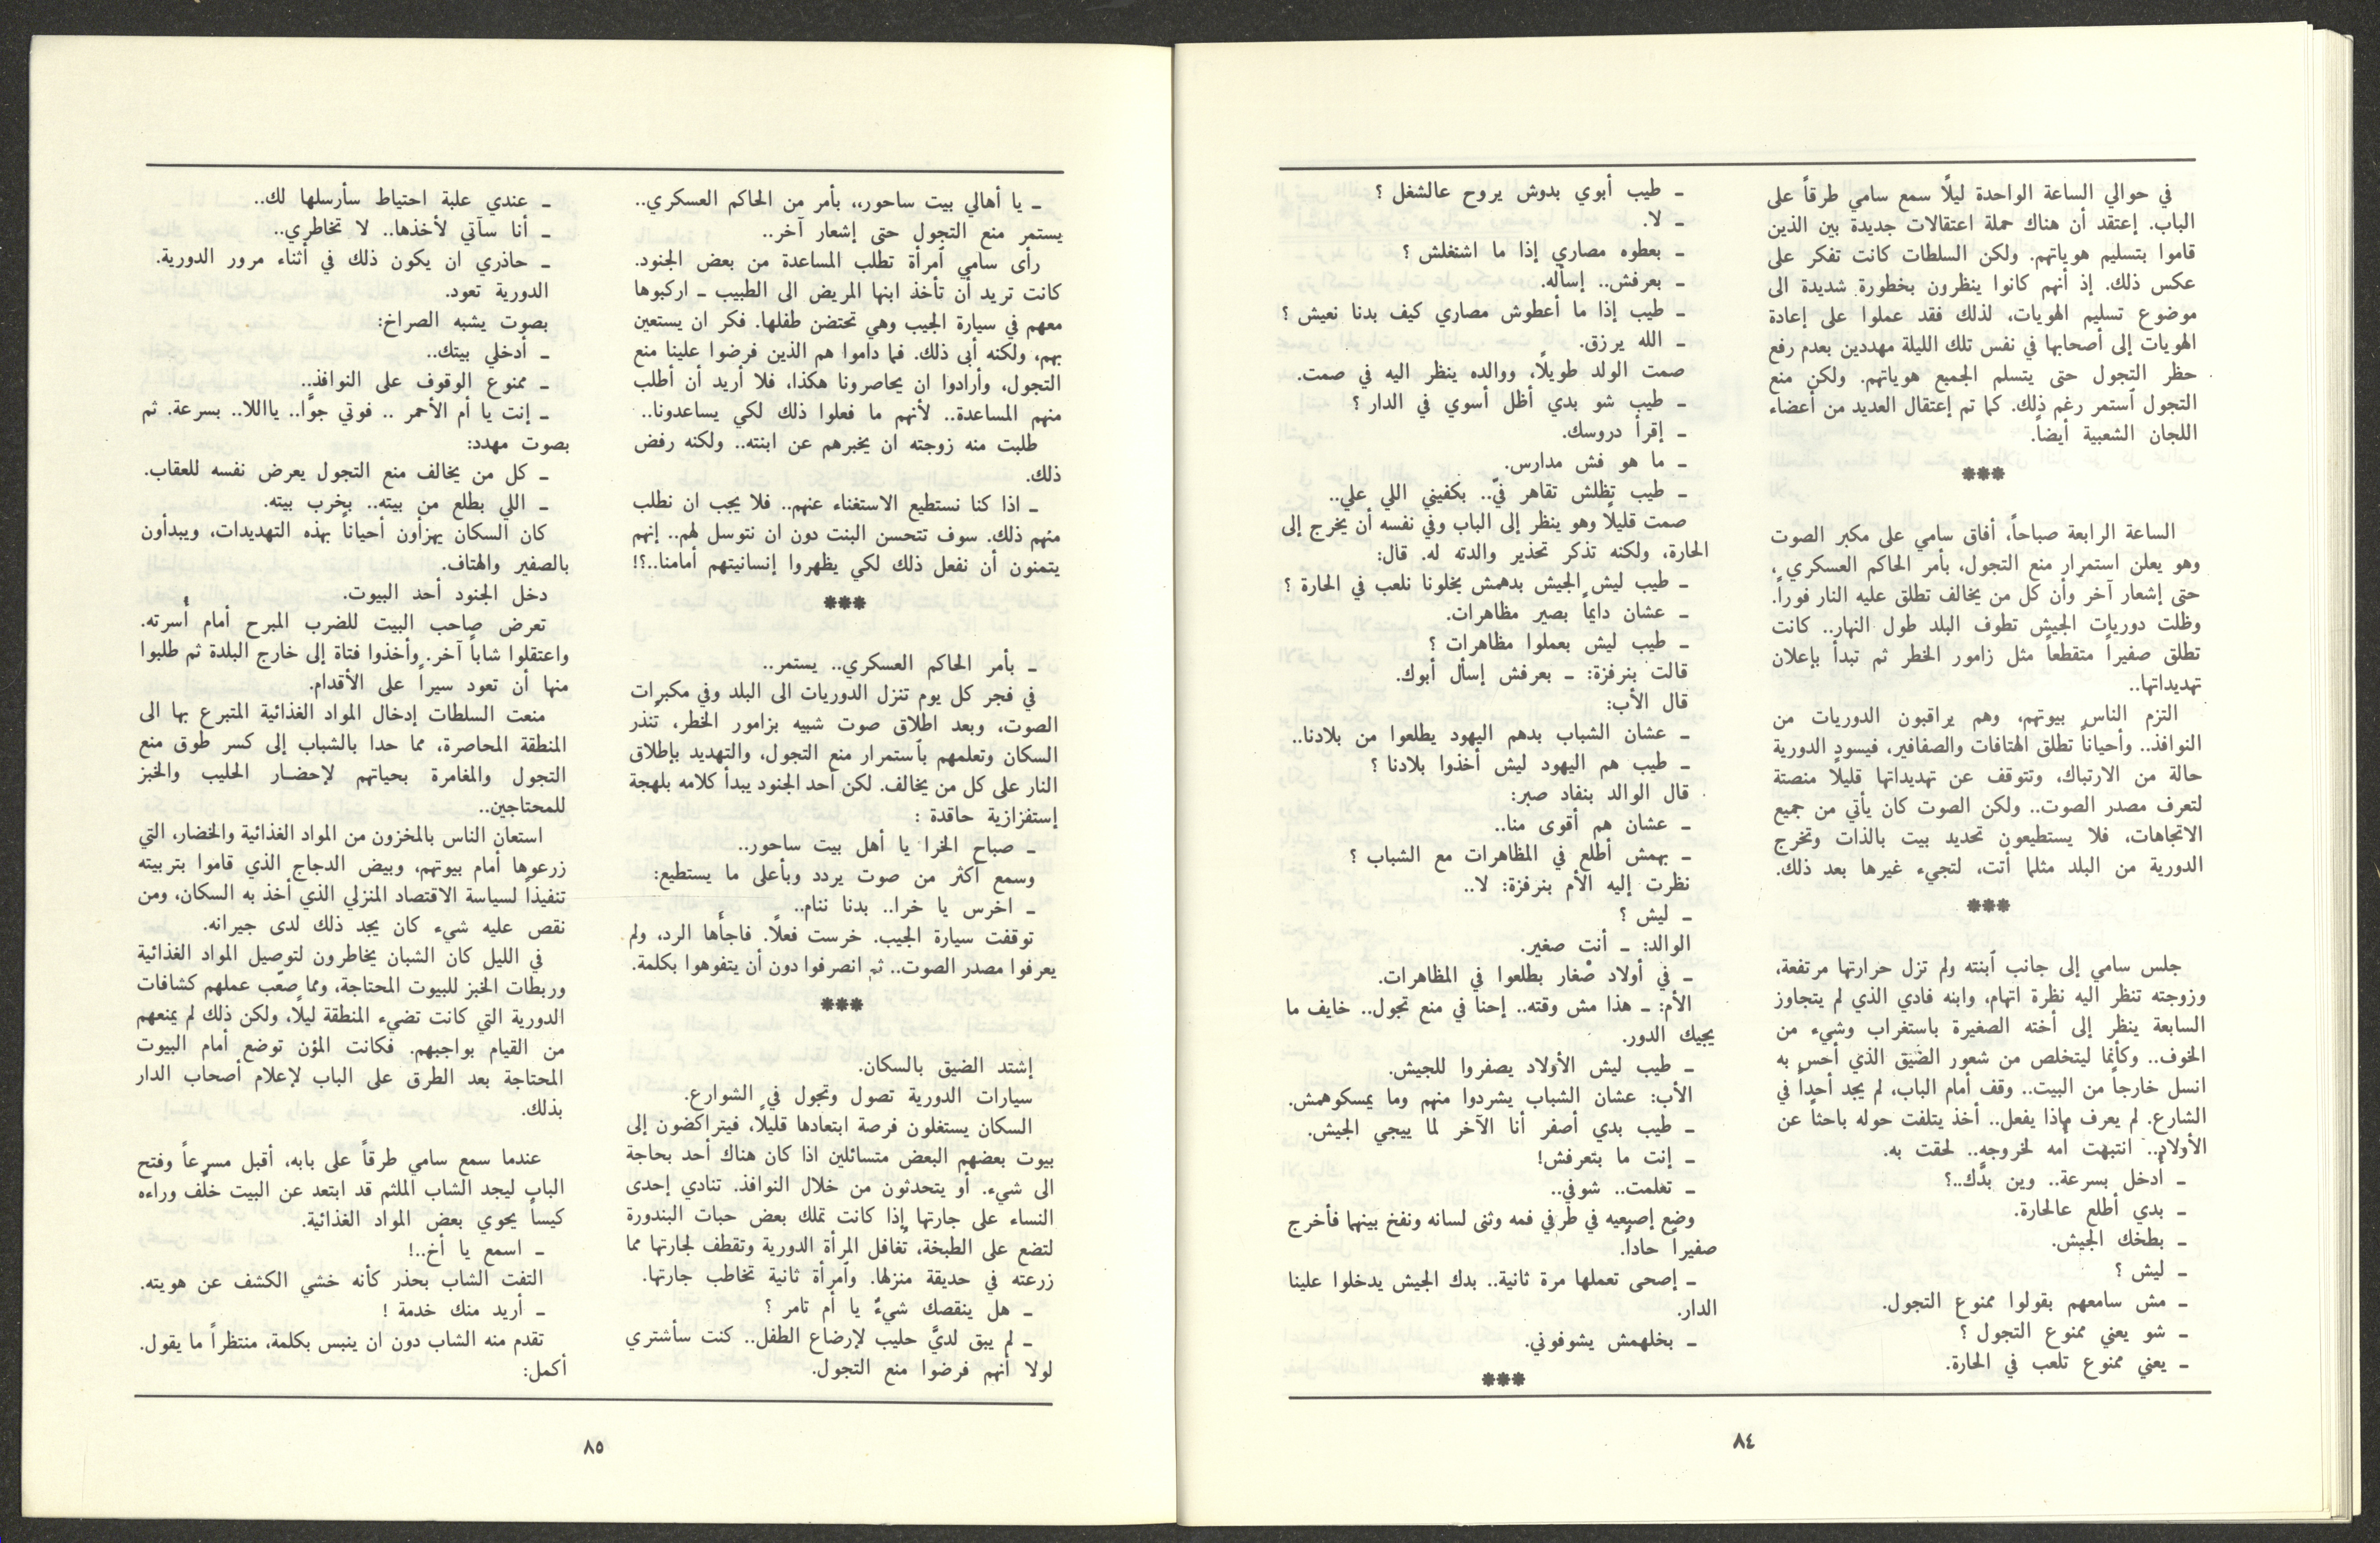 في حوالي الساعة الواحدة ليلًا سمع سامي طرقاً على
الباب. إعتقد أن هناك حملة اعتقالات جديدة بين الذين
قاموا بتسليم هوياتهم. ولكن السلطات كانت تفكر على
عكس ذلك. إذ أنهم كانوا ينظرون بخطورة شديدة الى
موضوع تسليم الهويات، لذلك فقد عملوا على إعادة
الهويات إلى أصحابها في نفس تلك الليلة مهددين بعدم رفع
حظر التجول حتى يتسلم الجميع هوياتهم. ولكن منع
التجول أستمر رغم ذلك. كما تم إعتقال العديد من أعضاء
اللجان الشعبية أيضاً.
***
الساعة الرابعة صباحاً، أفاق سامي على مكبر الصوت
وهو يعلن استمرار منع التجول، بأمر الحاكم العسكري ،
حتى إشعار آخر وأن كل من يخالف تطلق عليه النار فوراً.
وظلت دوريات الجيش تطوف البلد طول النهار.. كانت
تطلق صفيراً متقطعاً مثل زامور الخطر ثم تبدأ بإعلان
تهديداتها..
التزم الناس بيوتهم، وهم يراقبون الدوريات من
النوافذ.. وأحياناً تطلق الهتافات والصفافير، فيسود الدورية
حالة من الارتباك، وتتوقف عن تهديداتها قليلًا منصتة
لتعرف مصدر الصوت.. ولكن الصوت كان يأتي من جميع
الاتجاهات، فلا يستطيعون تحديد بيت بالذات وتخرج
الدورية من البلد مثلما أتت، لتجيء غيرها بعد ذلك.
***
جلس سامي إلى جانب أبنته ولم تزل حرارتها مرتفعة،
وزوجته تنظر اليه نظرة اتهام، وابنه فادي الذي لم يتجاوز
السابعة ينظر إلى أخته الصغيرة باستغراب وشيء من
الخوف.. وكأنما ليتخلص من شعور الضيق الذي أحس به
انسل خارجاً من البيت.. وقف أمام الباب، لم يجد أحداً في
الشارع. لم يعرف ماذا يفعل.. أخذ يتلفت حوله باحثاً عن
الأولاد.. انتبهت أمه لخروجه.. لحقت به.
ـ أدخل بسرعة.. وين بدَّك..؟
ـ بدي أطلع عالحارة.
ـ بطخك الجيش.
ـ ليش ؟
ـ مش سامعهم بقولوا ممنوع التجول.
ـ شو يعني ممنوع التجول ؟
ـ يعني ممنوع تلعب في الحارة.
ـ طيب أبوي بدوش يروح عالشغل ؟
ـ لا.
ـ بعطوه مصاري إذا ما اشتغلش ؟
ـ بعرفش.. إسأله.
ـ طيب إذا ما أعطوش مصاري كيف بدنا نعيش ؟
ـ الله يرزق.
صمت الولد طويلًا، ووالده ينظر اليه في صمت.
ـ طيب شو بدي أظل أسوي في الدار ؟
ـ إقرأ دروسك.
ـ ما هو فش مدارس.
ـ طيب تظلش تقاهر فيّ.. بكفيني اللي علي..
صمت قليلًا وهو ينظر إلى الباب وفي نفسه أن يخرج إلى
الحارة، ولكنه تذكر تحذير والدته له. قال:
ـ طيب ليش الجيش بدهمش يخلونا نلعب في الحارة ؟
ـ عشان دايماً بصير مظاهرات.
ـ طيب ليش بعملوا مظاهرات ؟
قالت بنرفزة: ـ بعرفش إسأل أبوك.
قال الأب:
ـ عشان الشباب بدهم اليهود يطلعوا من بلادنا..
ـ طيب هم اليهود ليش أخذوا بلادنا ؟
قال الوالد بنفاد صبر:
ـ عشان هم أقوى منا..
ـ بهمش أطلع في المظاهرات مع الشباب ؟
نظرت إليه الأم بنرفزة: لا..
ـ ليش ؟
الوالد: ـ أنت صغير.
ـ في أولاد صْغار بطلعوا في المظاهرات.
الأم: ـ هذا مش وقته.. إحنا في منع تجول.. خايف ما
يجيك الدور.
ـ طيب ليش الأولاد يصفروا للجيش.
الأب: عشان الشباب يشردوا منهم وما يمسكوهمش.
ـ طيب بدي أصفر أنا الآخر لما ييجي الجيش.
ـ إنت ما بتعرفش!
ـ تعلمت.. شوفي..
وضع إصبعيه في طرفي فمه وثنى لسانه ونفخ بينهما فأخرج
صفيراً حاداً.
ـ إصحى تعملها مرة ثانية.. بدك الجيش يدخلوا علينا
الدار.
ـ بخلهمش يشوفوني.
***
٨٤
ـ يا أهالي بيت ساحور،، بأمر من الحاكم العسكري..
يستمر منع التجول حتى إشعار آخر..
رأى سامي أمرأة تطلب المساعدة من بعض الجنود.
كانت تريد أن تأخذ ابنها المريض الى الطبيب ـ اركبوها
معهم في سيارة الجيب وهي تحتضن طفلها. فكر ان يستعين
بهم، ولكنه أبى ذلك. فما داموا هم الذين فرضوا علينا منع
التجول، وأرادوا ان يحاصرونا هكذا، فلا أريد أن أطلب
منهم المساعدة.. لأنهم ما فعلوا ذلك لكي يساعدونا..
طلبت منه زوجته ان يخبرهم عن ابنته.. ولكنه رفض
ذلك.
ـ اذا كنا نستطيع الاستغناء عنهم.. فلا يجب ان نطلب
منهم ذلك. سوف تتحسن البنت دون ان نتوسل لهم.. إنهم
يتمنون أن نفعل ذلك لكي يظهروا إنسانيتهم أمامنا..؟!
***
ـ بأمر الحاكم العسكري.. يستمر..
في فجر كل يوم تنزل الدوريات الى البلد وفي مكبرات
الصوت، وبعد اطلاق صوت شبيه بزامور الخطر، تُنذر
السكان وتعلمهم بأستمرار منع التجول، والتهديد بإطلاق
النار على كل من يخالف. لكن أحد الجنود يبدأ كلامه بلهجة
إستفزازية حاقدة :
ـ صباح الخرا يا أهل بيت ساحور..
وسمع أكثر من صوت يردد وبأعلى ما يستطيع:
ـ اخرس يا خرا.. بدنا ننام..
توقفت سيارة الجيب. خرست فعلًا. فاجأها الرد، ولم
يعرفوا مصدر الصوت.. ثم انصرفوا دون أن يتفوهوا بكلمة.
***
إشتد الضيق بالسكان.
سيارات الدورية تصول وتجول في الشوارع.
السكان يستغلون فرصة ابتعادها قليلًا، فيتراكضون إلى
بيوت بعضهم البعض متسائلين اذا كان هناك أحد بحاجة
الى شيء. أو يتحدثون من خلال النوافذ. تنادي إحدى
النساء على جارتها إذا كانت تملك بعض حبات البندورة
لتضع على الطبخة، تغافل المرأة الدورية وتقطف لجارتها مما
زرعته في حديقة منزلها. وأمرأة ثانية تخاطب جارتها.
ـ هل ينقصك شيءٌ يا أم تامر ؟
ـ لم يبق لديَّ حليب لإرضاع الطفل.. كنت سأشتري
لولا أنهم فرضوا منع التجول.
ـ عندي علبة احتياط سأرسلها لك..
ـ أنا سآتي لأخذها.. لا تخاطري..
ـ حاذري ان يكون ذلك في أثناء مرور الدورية.
الدورية تعود.
بصوت يشبه الصراخ:
ـ أدخلي بيتك..
ـ ممنوع الوقوف على النوافذ..
ـ إنت يا أم الأحمر .. فوتي جوَّا.. يااللا.. بسرعة. ثم
بصوت مهدد:
ـ كل من يخالف منع التجول يعرض نفسه للعقاب.
ـ اللي بطلع من بيته.. بخرب بيته.
كان السكان يهزأون أحياناً بهذه التهديدات، ويبدأون
بالصفير والهتاف.
دخل الجنود أحد البيوت.
تعرض صاحب البيت للضرب المبرح أمام أسرته.
واعتقلوا شاباً آخر. وأخذوا فتاة إلى خارج البلدة ثم طلبوا
منها أن تعود سيراً على الأقدام.
منعت السلطات إدخال المواد الغذائية المتبرع بها الى
المنطقة المحاصرة، مما حدا بالشباب إلى كسر طوق منع
التجول والمغامرة بحياتهم لإحضار الحليب والخبز
للمحتاجين..
استعان الناس بالمخزون من المواد الغذائية والخضار، التي
زرعوها أمام بيوتهم، وبيض الدجاج الذي قاموا بتربيته
تنفيذاً لسياسة الاقتصاد المنزلي الذي أخذ به السكان، ومن
نقص عليه شيء كان يجد ذلك لدى جيرانه.
في الليل كان الشبان يخاطرون لتوصيل المواد الغذائية
وربطات الخبز للبيوت المحتاجة، ومما صعّب عملهم كشافات
الدورية التي كانت تضيء المنطقة ليلًا، ولكن ذلك لم يمنعهم
من القيام بواجبهم. فكانت المؤن توضع أمام البيوت
المحتاجة بعد الطرق على الباب لإعلام أصحاب الدار
بذلك.
عندما سمع سامي طرقاً على بابه، أقبل مسرعاً وفتح
الباب ليجد الشاب الملثم قد ابتعد عن البيت خلف وراءه
كيساً يحوي بعض المواد الغذائية.
ـ اسمع يا أخ..!
التفت الشاب بحذر كأنه خشي الكشف عن هويته.
ـ أريد منك خدمة !
تقدم منه الشاب دون ان ينبس بكلمة، منتظراً ما يقول.
أكمل:
٨٥